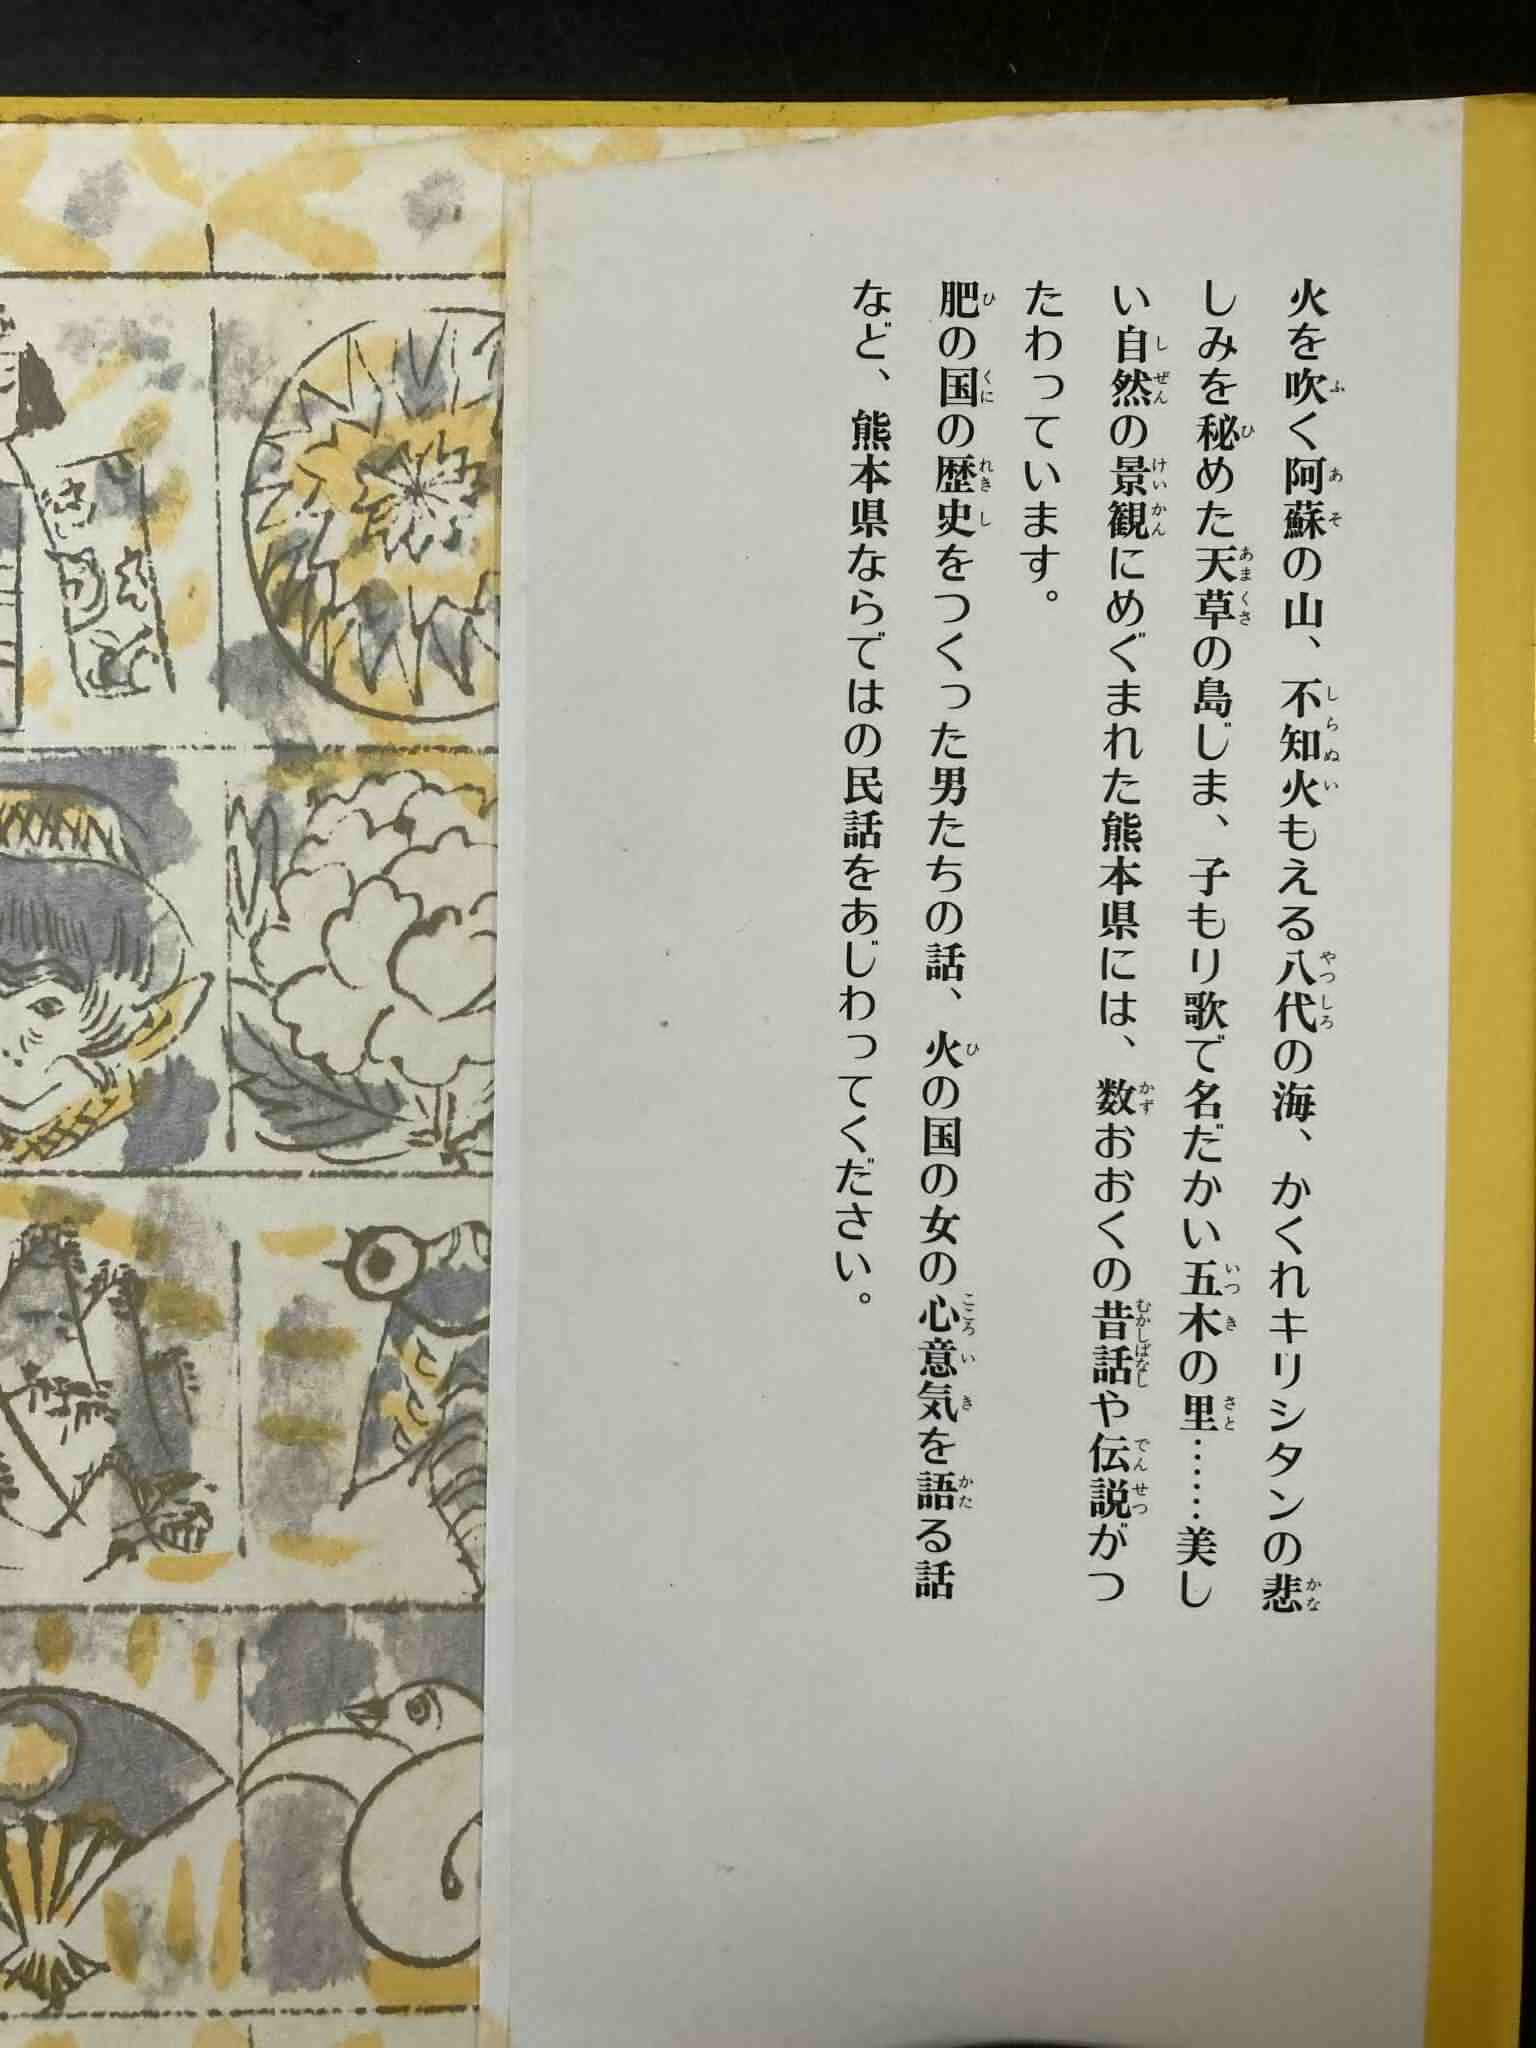 火を吹く阿蘇の山、不知火もえる八代の海、かくれキリシタンの悲
しみを秘めた天草の島じま、子もり歌で名だかい五木の里……美し
い自然の景観にめぐまれた熊本県には、数おおくの昔話や伝説がつ
たわっています。
肥の国の歴史をつくった男たちの話、火の国の女の心意気を語る話
など、熊本県ならではの民話をあじわってください。